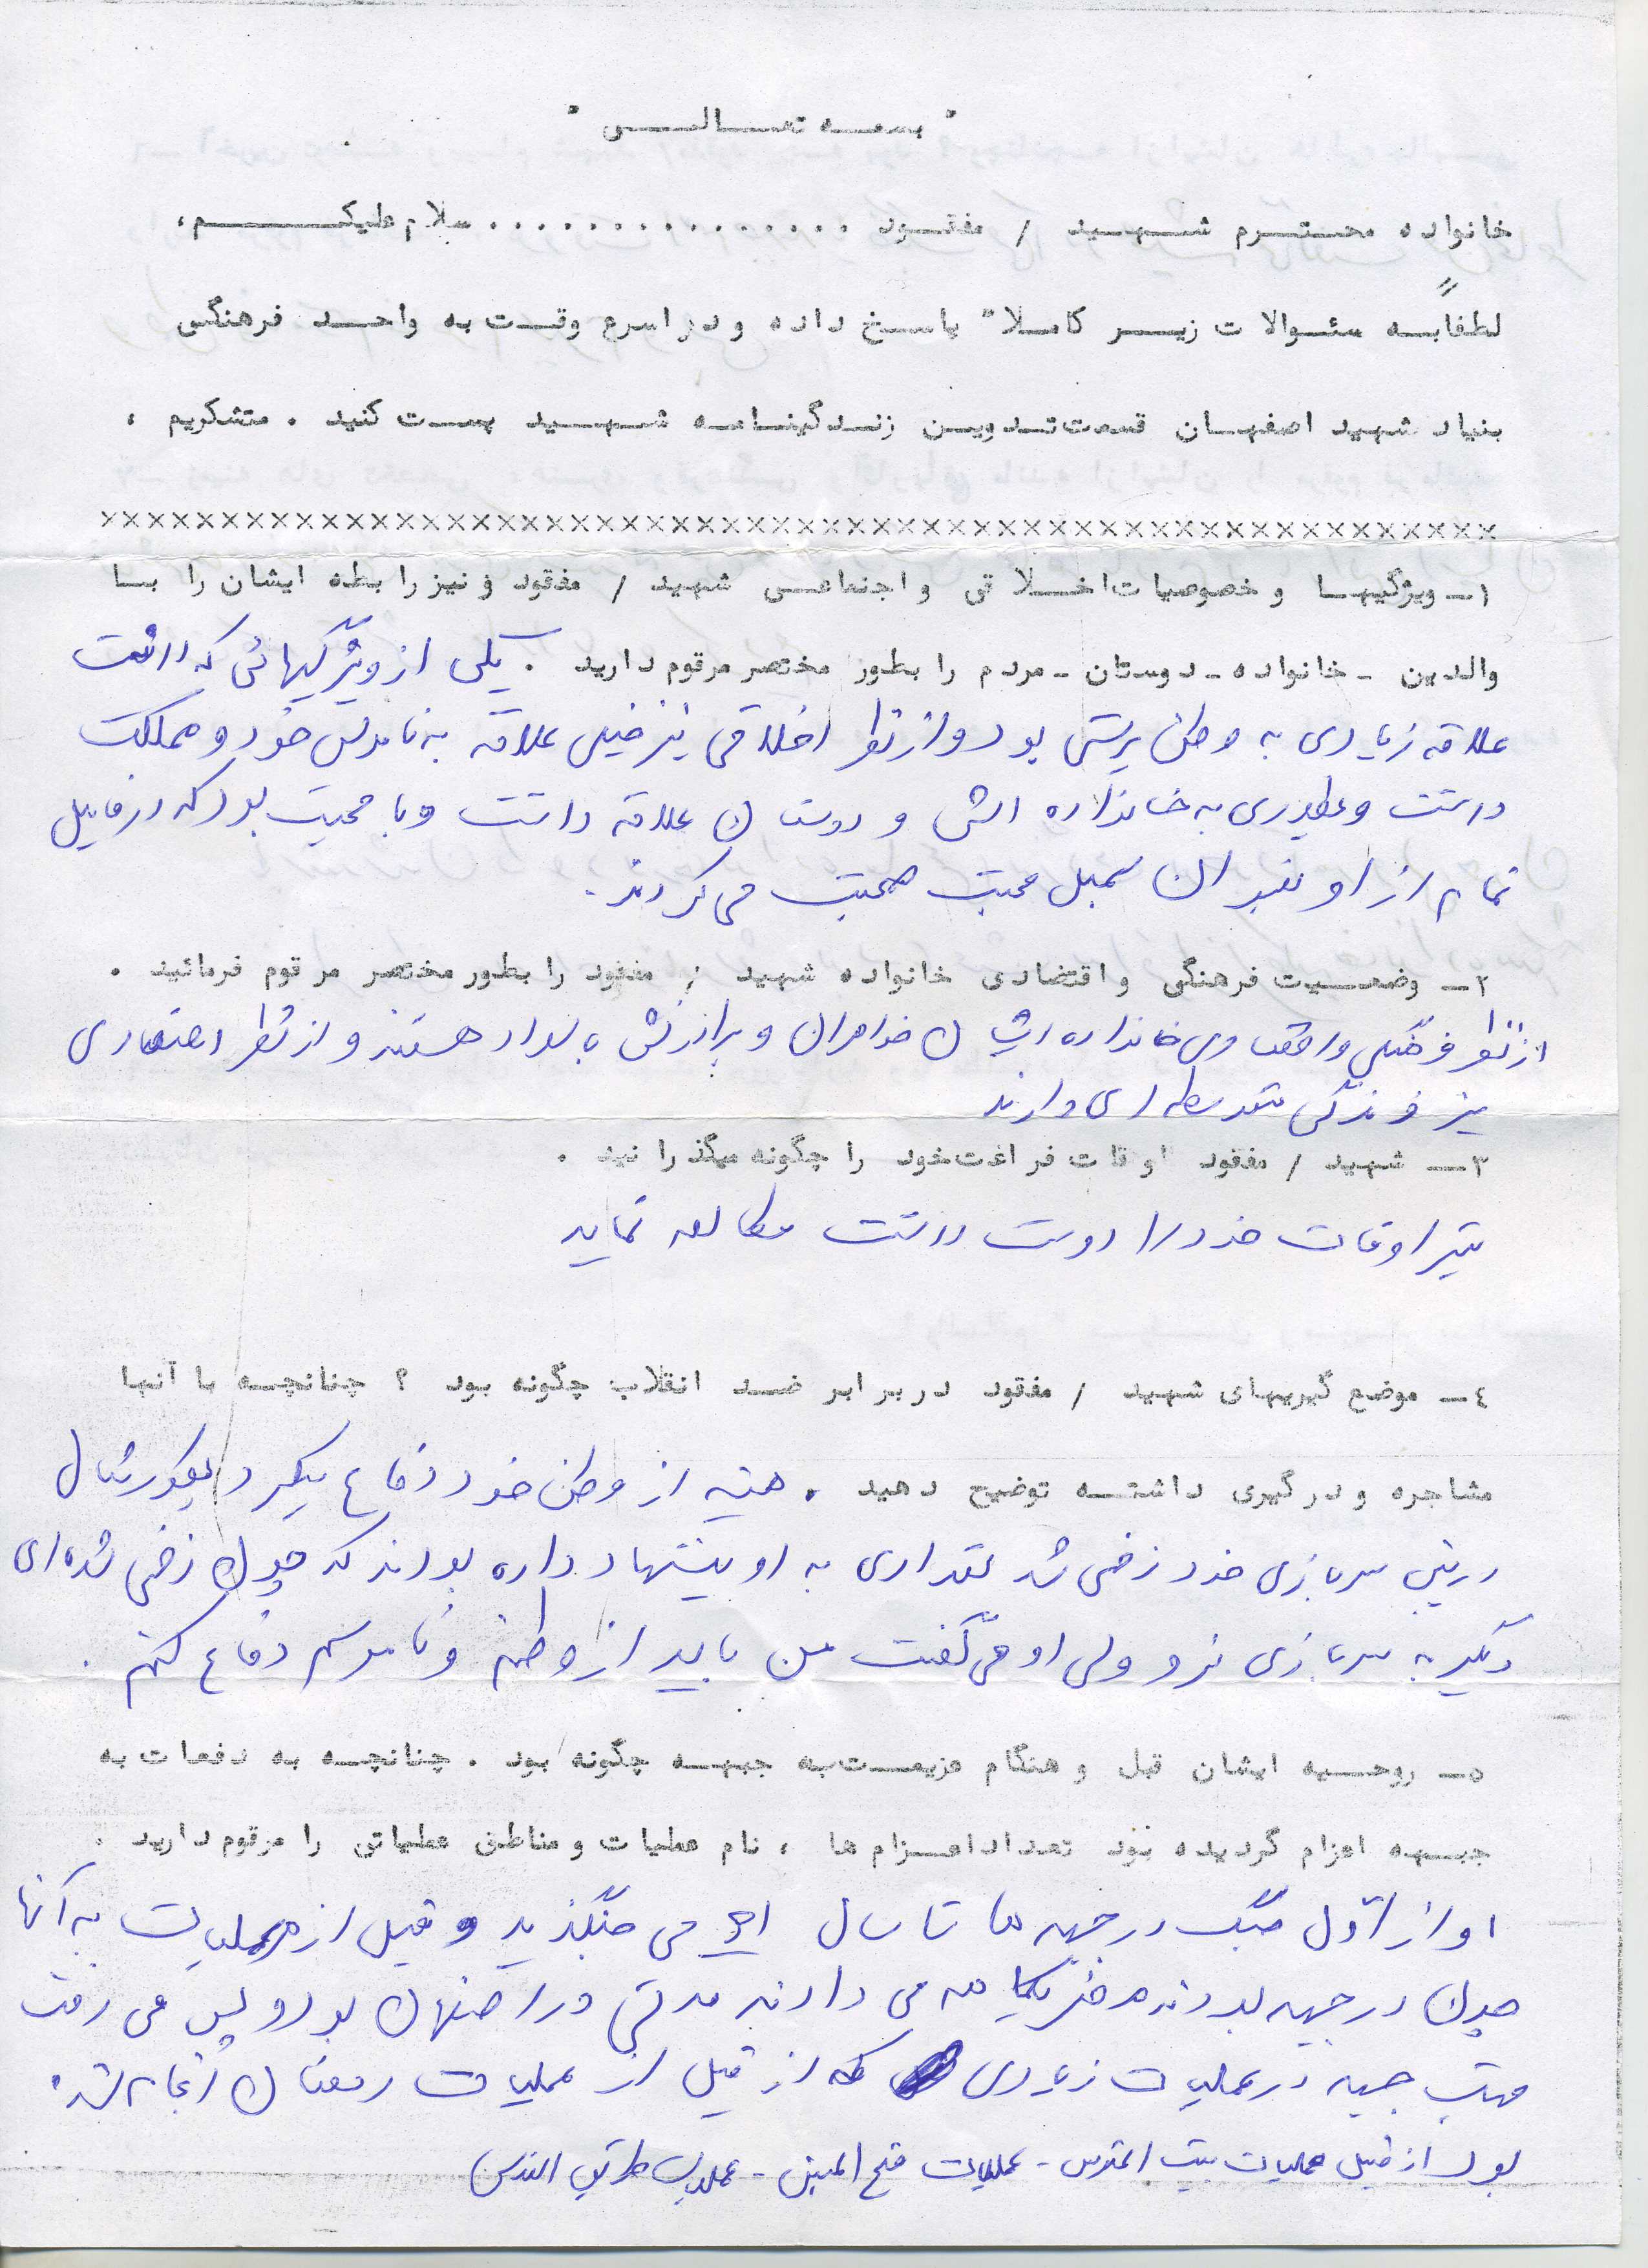 " بسمه تعالی "
خانواده محترم شهید / مفقود ............... سلام علیکم،
لطفاً به سئوالات زیر کاملا" پاسخ داده و در اسرع وقت به واحد فرهنگی
بنیاد شهید اصفهان قسمت تدوین زندگینامه شهید پست کنید . متشکریم ،
××××××××××××××××××××××××××××××××××××××××××××××××××××××××
۱ـ ویژگیها و خصوصیات اخلاقی و اجتماعی شهید / مفقود و نیز رابطه ایشان را با
والدین ـ خانواده ـ دوستان ـ مردم را بطور مختصر مرقوم دارید . یکی از ویژگیهائی که داشت
علاقه زیادی به وطن پرستی بود و از نظر اخلاقی نیز خیلی علاقه به ناموس خود و مملکت
داشت و بطوری به خانواده اش و دوستان علاقه داشت و با محبت بود که در فامیل
تمام از او بعنوان سمبل محبت صحبت می کردند .
۲ـ وضعیت فرهنگی و اقتصادی خانواده شهید / مفقود را بطور مختصر مرقوم فرمائید .
از نظر فرهنگی و اقتصادی خانواده ایشان خواهران و برادرنش باسواد هستند و از نظر اقتصادی
نیز زندگی متوسط ای دارند
۳ـ شهید / مفقود اوقات فراغت خود را چگونه میگذرانید .
بیشتر اوقات خود را دوست داشت مطالعه نماید
٤ـ موضع گیریهای شهید / مفقود در برابر ضد انقلاب چگونه بود ؟ چنانچه با آنها
مشاجره و درگیری داشته توضیح دهید . همیشه از وطن خود دفاع میکرد بطوریکه سال
در بین سربازی خود زخمی شد تعدادی به او پیشنهاد داده بودند که چون زخمی شده ای
دیگر به سربازی نرو ولی او می گفت من باید از وطنم و ناموسم دفاع کنم .
۵ـ روحیه ایشان قبل و هنگام عزیمت به جبهه چگونه بود . چنانچه به دفعات به
جبهه اعزام گردیده بود تعداد اعزام ها ، نام عملیات و مناطق عملیاتی را مرقوم دارید .
او از اول جنگ در جبهه ها تا سال می جنگید و قبل از عملیات به آنها
چون در جبهه بودند مرخصی می دادند مدتی در اصفهان بود و پس می رفت
جبهه در عملیات زیادی که از قبل از عملیات رمضان انجام شده
بود از قبیل عملیات بیت المقدس - عملیات فتح المبین - عملیات طریق القدس